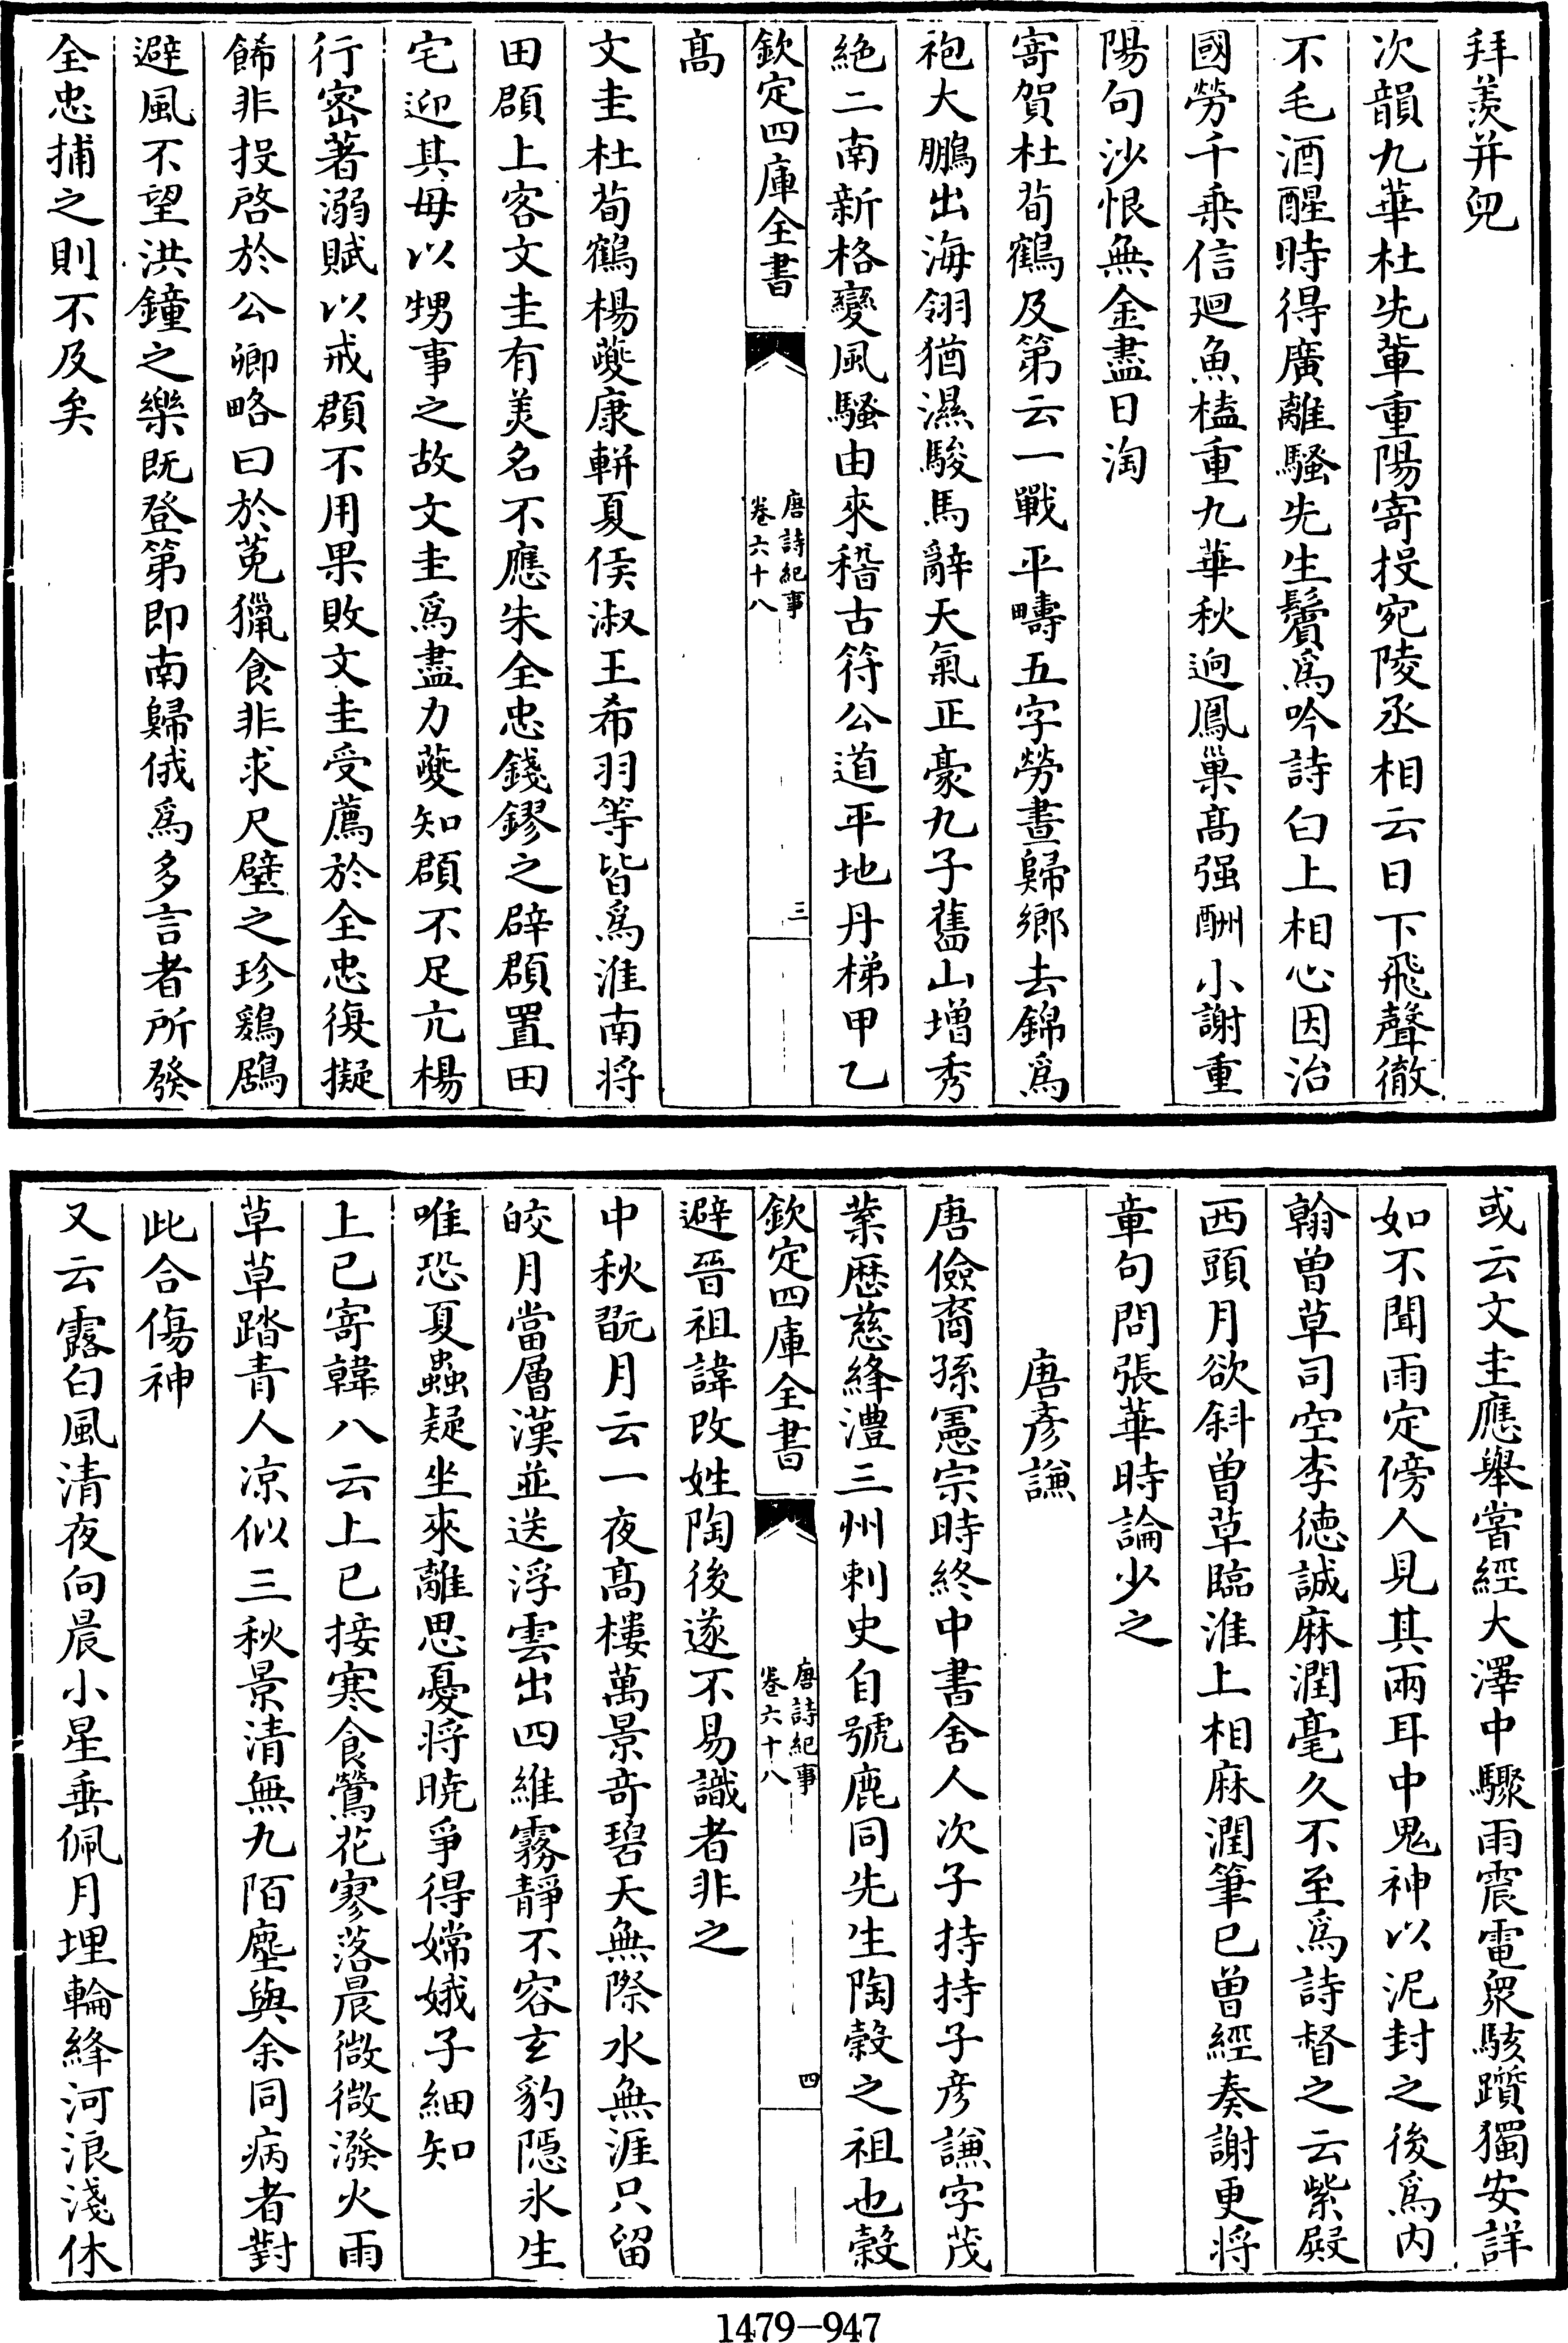 拜羙并兜
次韻九華杜先輩重陽寄投宛陵丞相云日下飛聲徹
不毛酒醒時得廣離騷先生鬢爲吟詩白上相心因治
國勞千乗信迴魚榼重九華秋逈鳳巢髙强酬小謝重
陽句沙恨無金盡日淘
寄賀杜荀鶴及第云一戰平疇五字勞晝歸鄉去錦爲
袍大鵬出海翎猶濕駿馬辭天氣正豪九子舊山增秀
絶二南新格變風騷由來稽古符公道平地丹梯甲乙
欽定四庫全書
唐詩紀事
卷六十八
三
髙
文圭杜荀鶴楊夔康軿夏侯淑王希羽等皆爲淮南將
田頵上客文圭有美名不應朱全忠錢鏐之辟頵置田
宅迎其母以甥事之故文圭爲盡力夔知頵不足亢楊
行密著溺賦以戒頵不用果敗文圭受薦於全忠復擬
餙非投啓於公卿略曰於莵獵食非求尺璧之珍鶢鶋
避風不望洪鐘之樂既登第即南歸俄爲多言者所發
全忠捕之則不及矣
或云文圭應舉嘗經大澤中驟雨震電衆駭躓獨安詳
如不聞雨定傍人見其兩耳中鬼神以泥封之後爲内
翰曽草司空李徳誠麻潤毫久不至爲詩督之云紫殿
西頭月欲斜曽草臨淮上相麻潤筆已曽經奏謝更將
章句問張華時論少之
唐彦謙
唐儉裔孫憲宗時終中書舍人次子持持子彦謙字茂
業歴慈絳澧三州刺史自號鹿同先生陶榖之祖也榖
欽定四庫全書
唐詩紀事
卷六十八
四
避晉祖諱改姓陶後遂不易識者非之
中秋翫月云一夜髙樓萬景竒碧天無際水無涯只留
皎月當層漢並送浮雲出四維霧靜不容玄豹隱氷生
唯恐夏蟲疑坐來離思憂將曉爭得嫦娥子細知
上巳寄韓八云上巳接寒食鶯花寥落晨微微潑火雨
草草踏青人凉似三秋景清無九陌塵與余同病者對
此合傷神
又云露白風清夜向晨小星垂佩月埋輪絳河浪淺休
1479-947